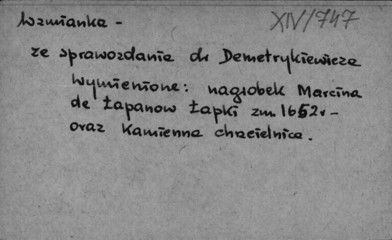 Wzmianka - XIV/747
ze sprawozdania dr Demetrykiewicza
wymienione: nagrobek Marcina
de Łapanow Łapki zm. 1652r -
oraz Kamienna chrzcielnica.